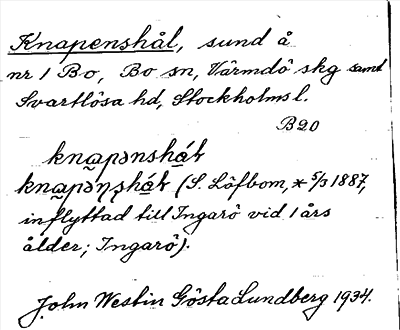 Knapenshål, sund å
nr 1 Bo, Bo sn, Värmdö skg samt
Svartlösa hd, Stockholms l.
B20
knapənshål
knapəṇṣhål (S. Löfbom, * 5/3 1887,
inflyttad till Ingarö vid 1 års
ålder; Ingarö).
John Westin Gösta Lundberg 1934.